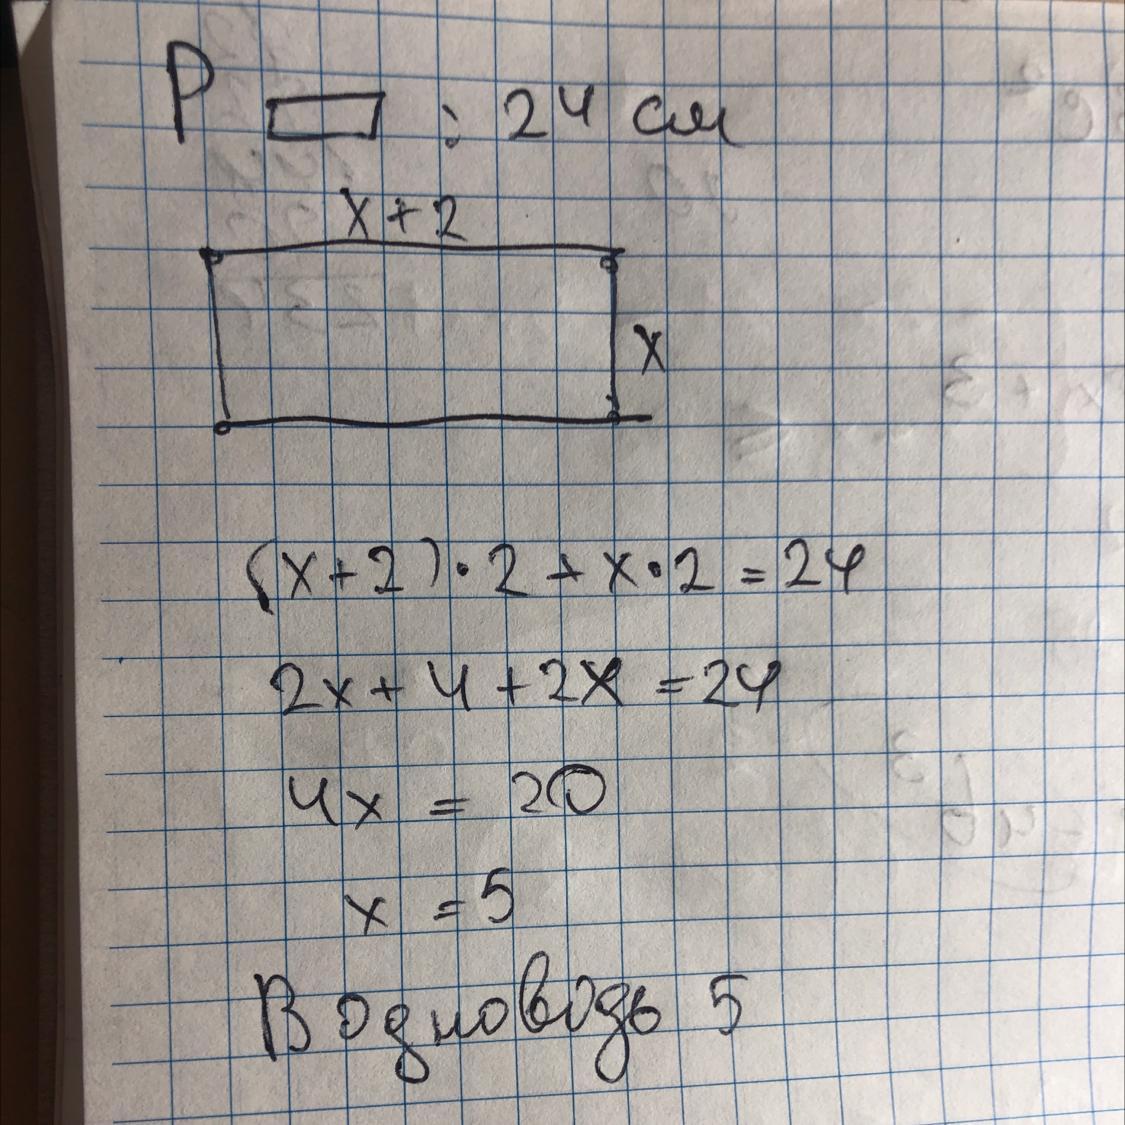 P ▭ : 24 см
x + 2
x
(x+2)·2 + x·2 = 24
2x + 4 + 2x = 24
4x = 20
x = 5
5